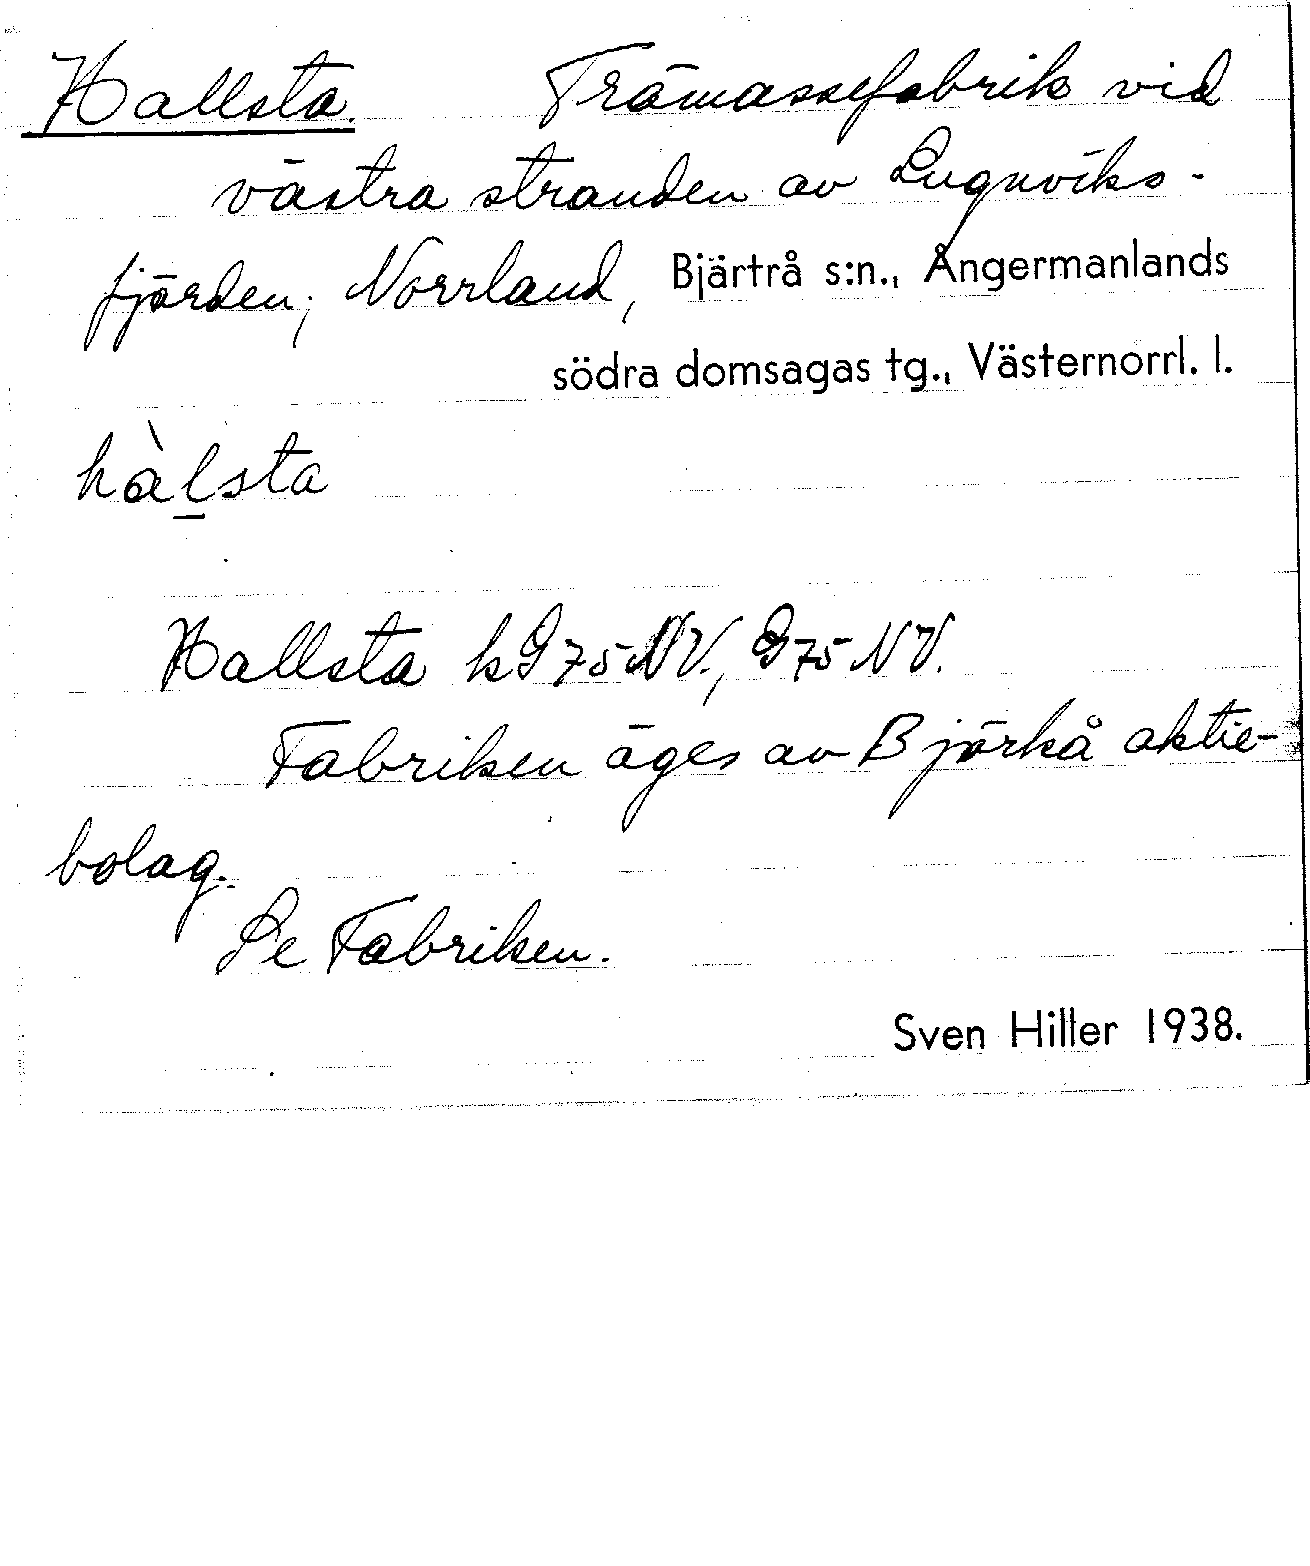 Hallsta. Trämassefabrik vid
västra stranden av Lugnviks-
fjärden; Norrland, Bjärtrå s:n., Ångermanlands
södra domsagas tg., Västernorrl. l.
hàlsta
Hallsta kG75NV., G75NV.
Fabriken äges av Björkå aktie-
bolag.
Se Fabriken.
Sven Hiller 1938.